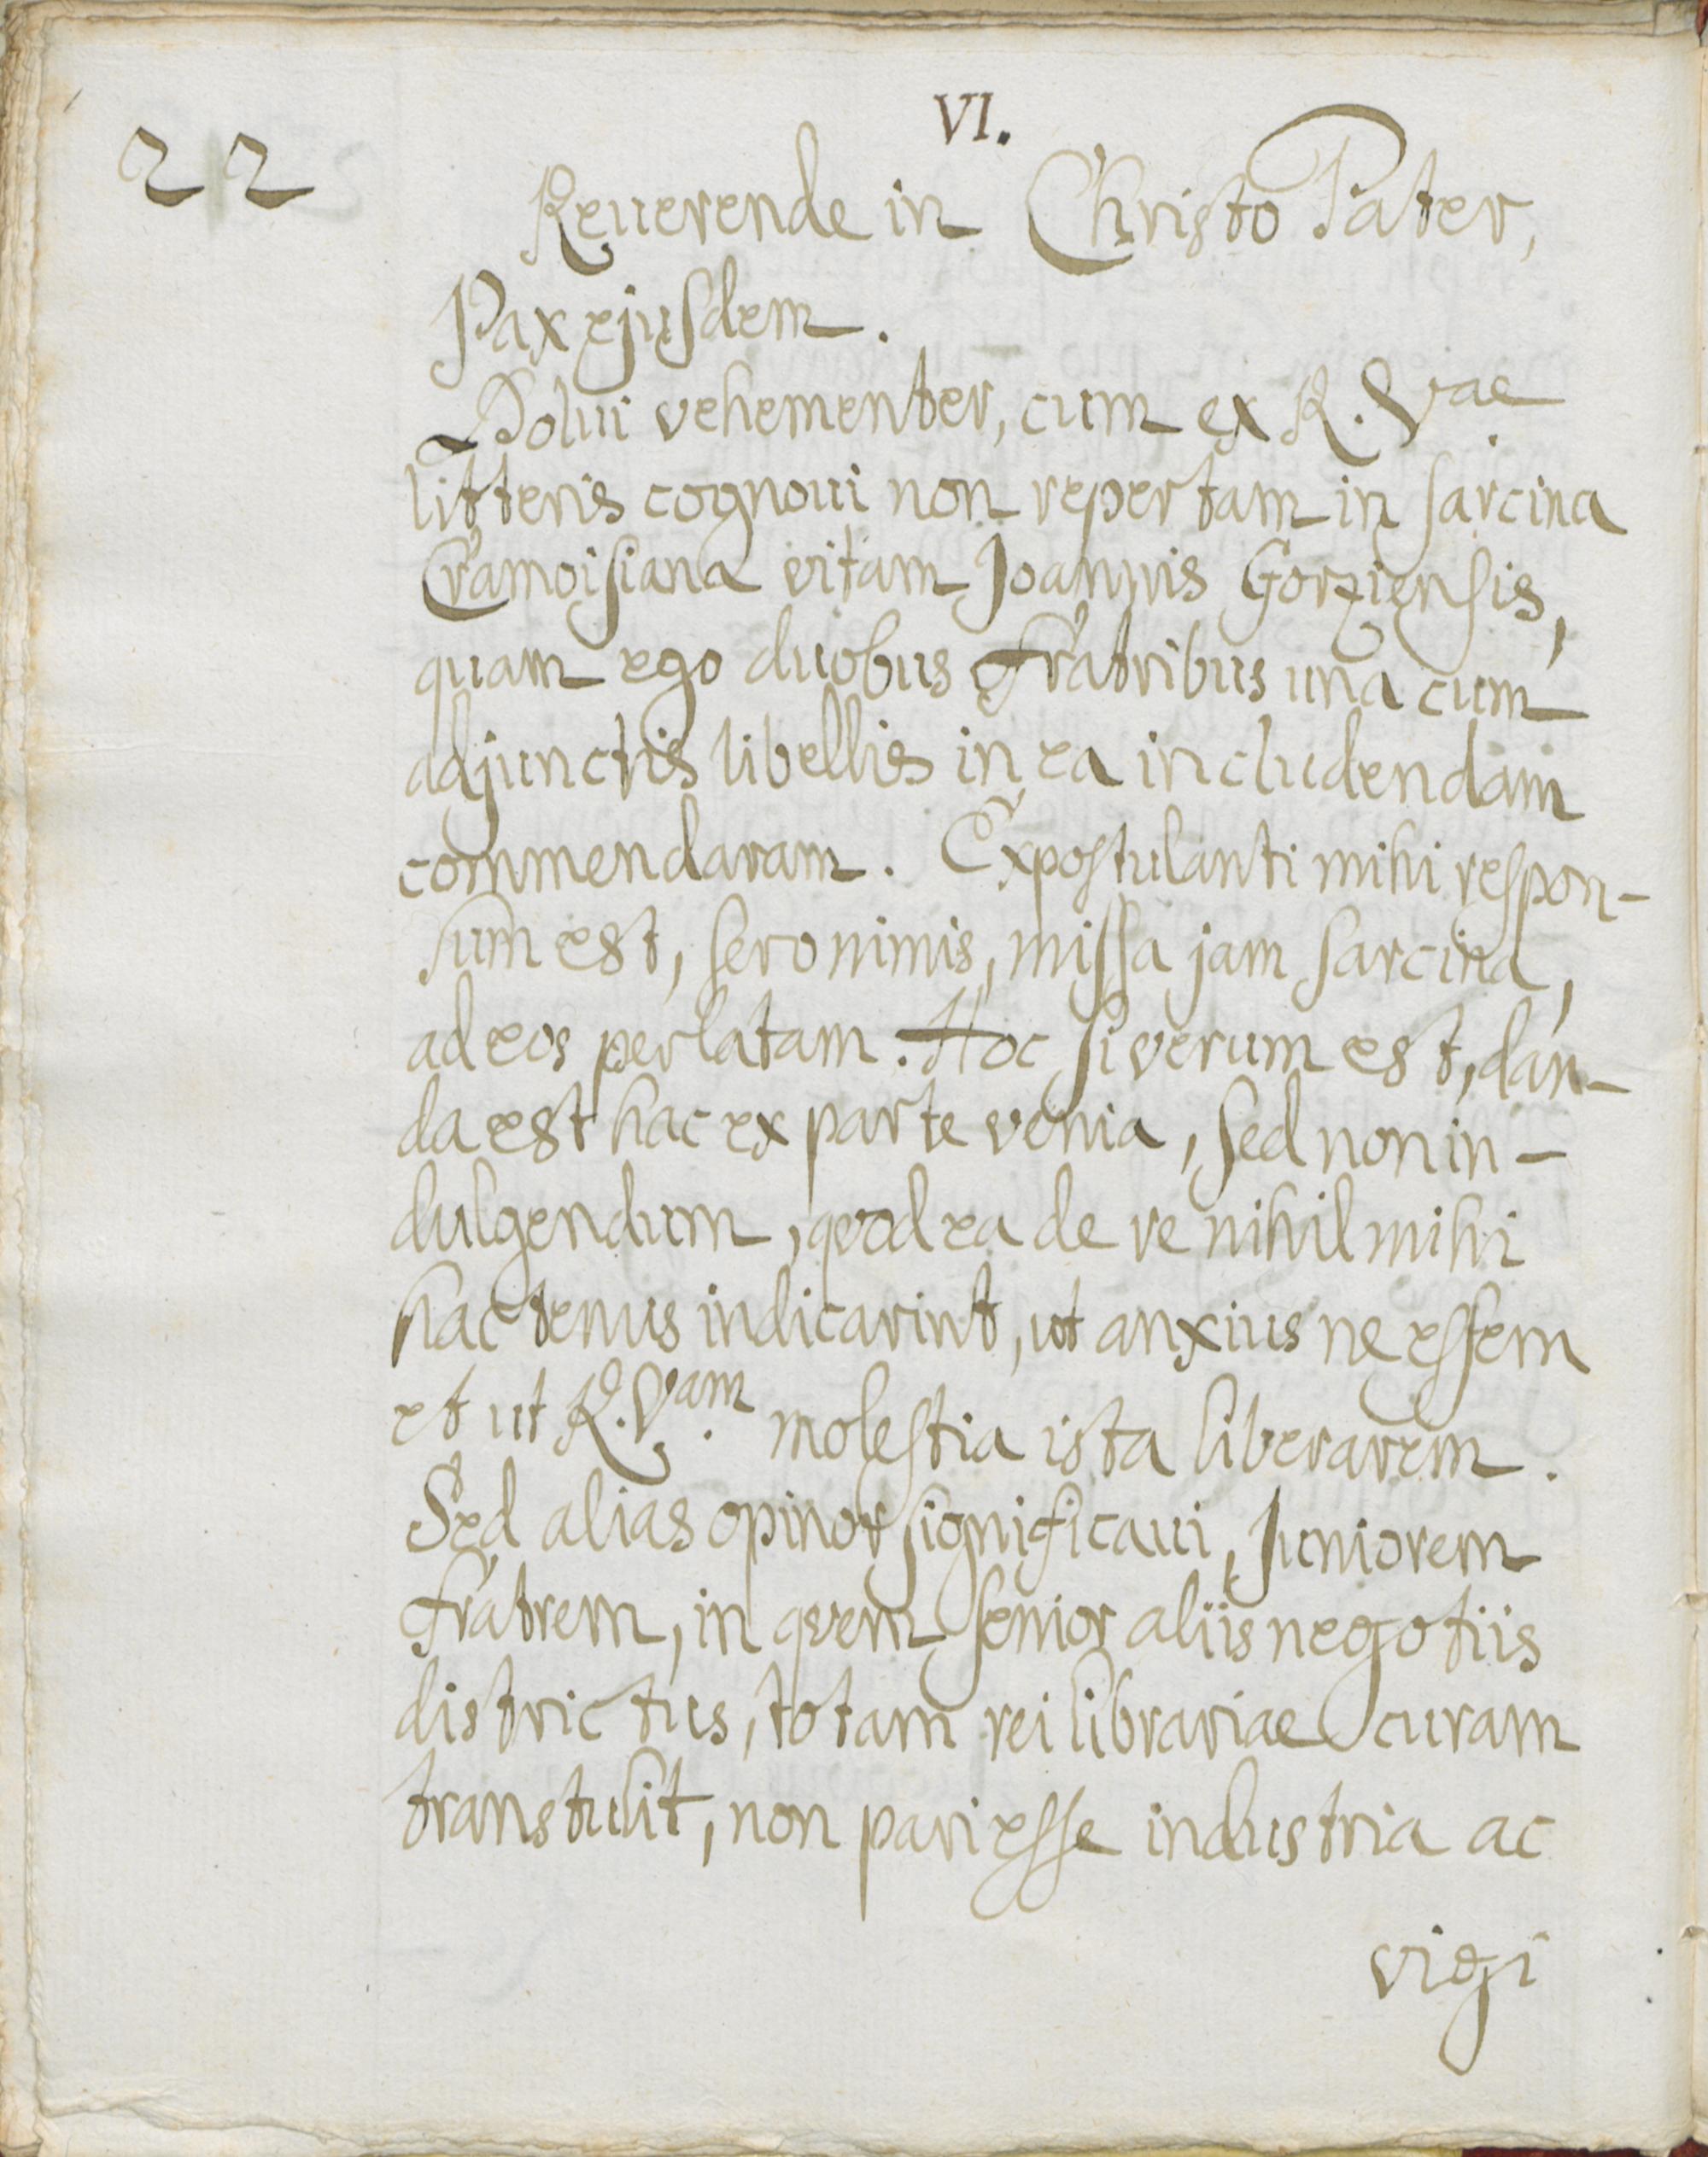 VI.
22
Reuerende in Christo Pater,
Pax ejusdem.
Dolui vehementer, cum ex R. Vae.
litteris cognoui non repertam in sarcina
Cramoisiana vitam Joannis Gorziensis,
quam ego duobus Fratribus una cum
adjunctis libellis in ea includendam
commendaram. Expostulanti mihi respon-
sum est, sero nimis, missa jam sarcina,
ad eos perlatam. Hoc si verum est, dan-
da est hac ex parte venia, sed non in-
dulgendum, quod ea de re nihil mihi
hactenus indicarint, ut anxius ne essem
et ut R. Vam. molestia ista liberarem.
Sed alias opinor significaui, Juniorem
Fratrem, in quem senior aliis negotiis
districtus, totam rei librariae curam
transtulit, non pari esse industria ac
vigi